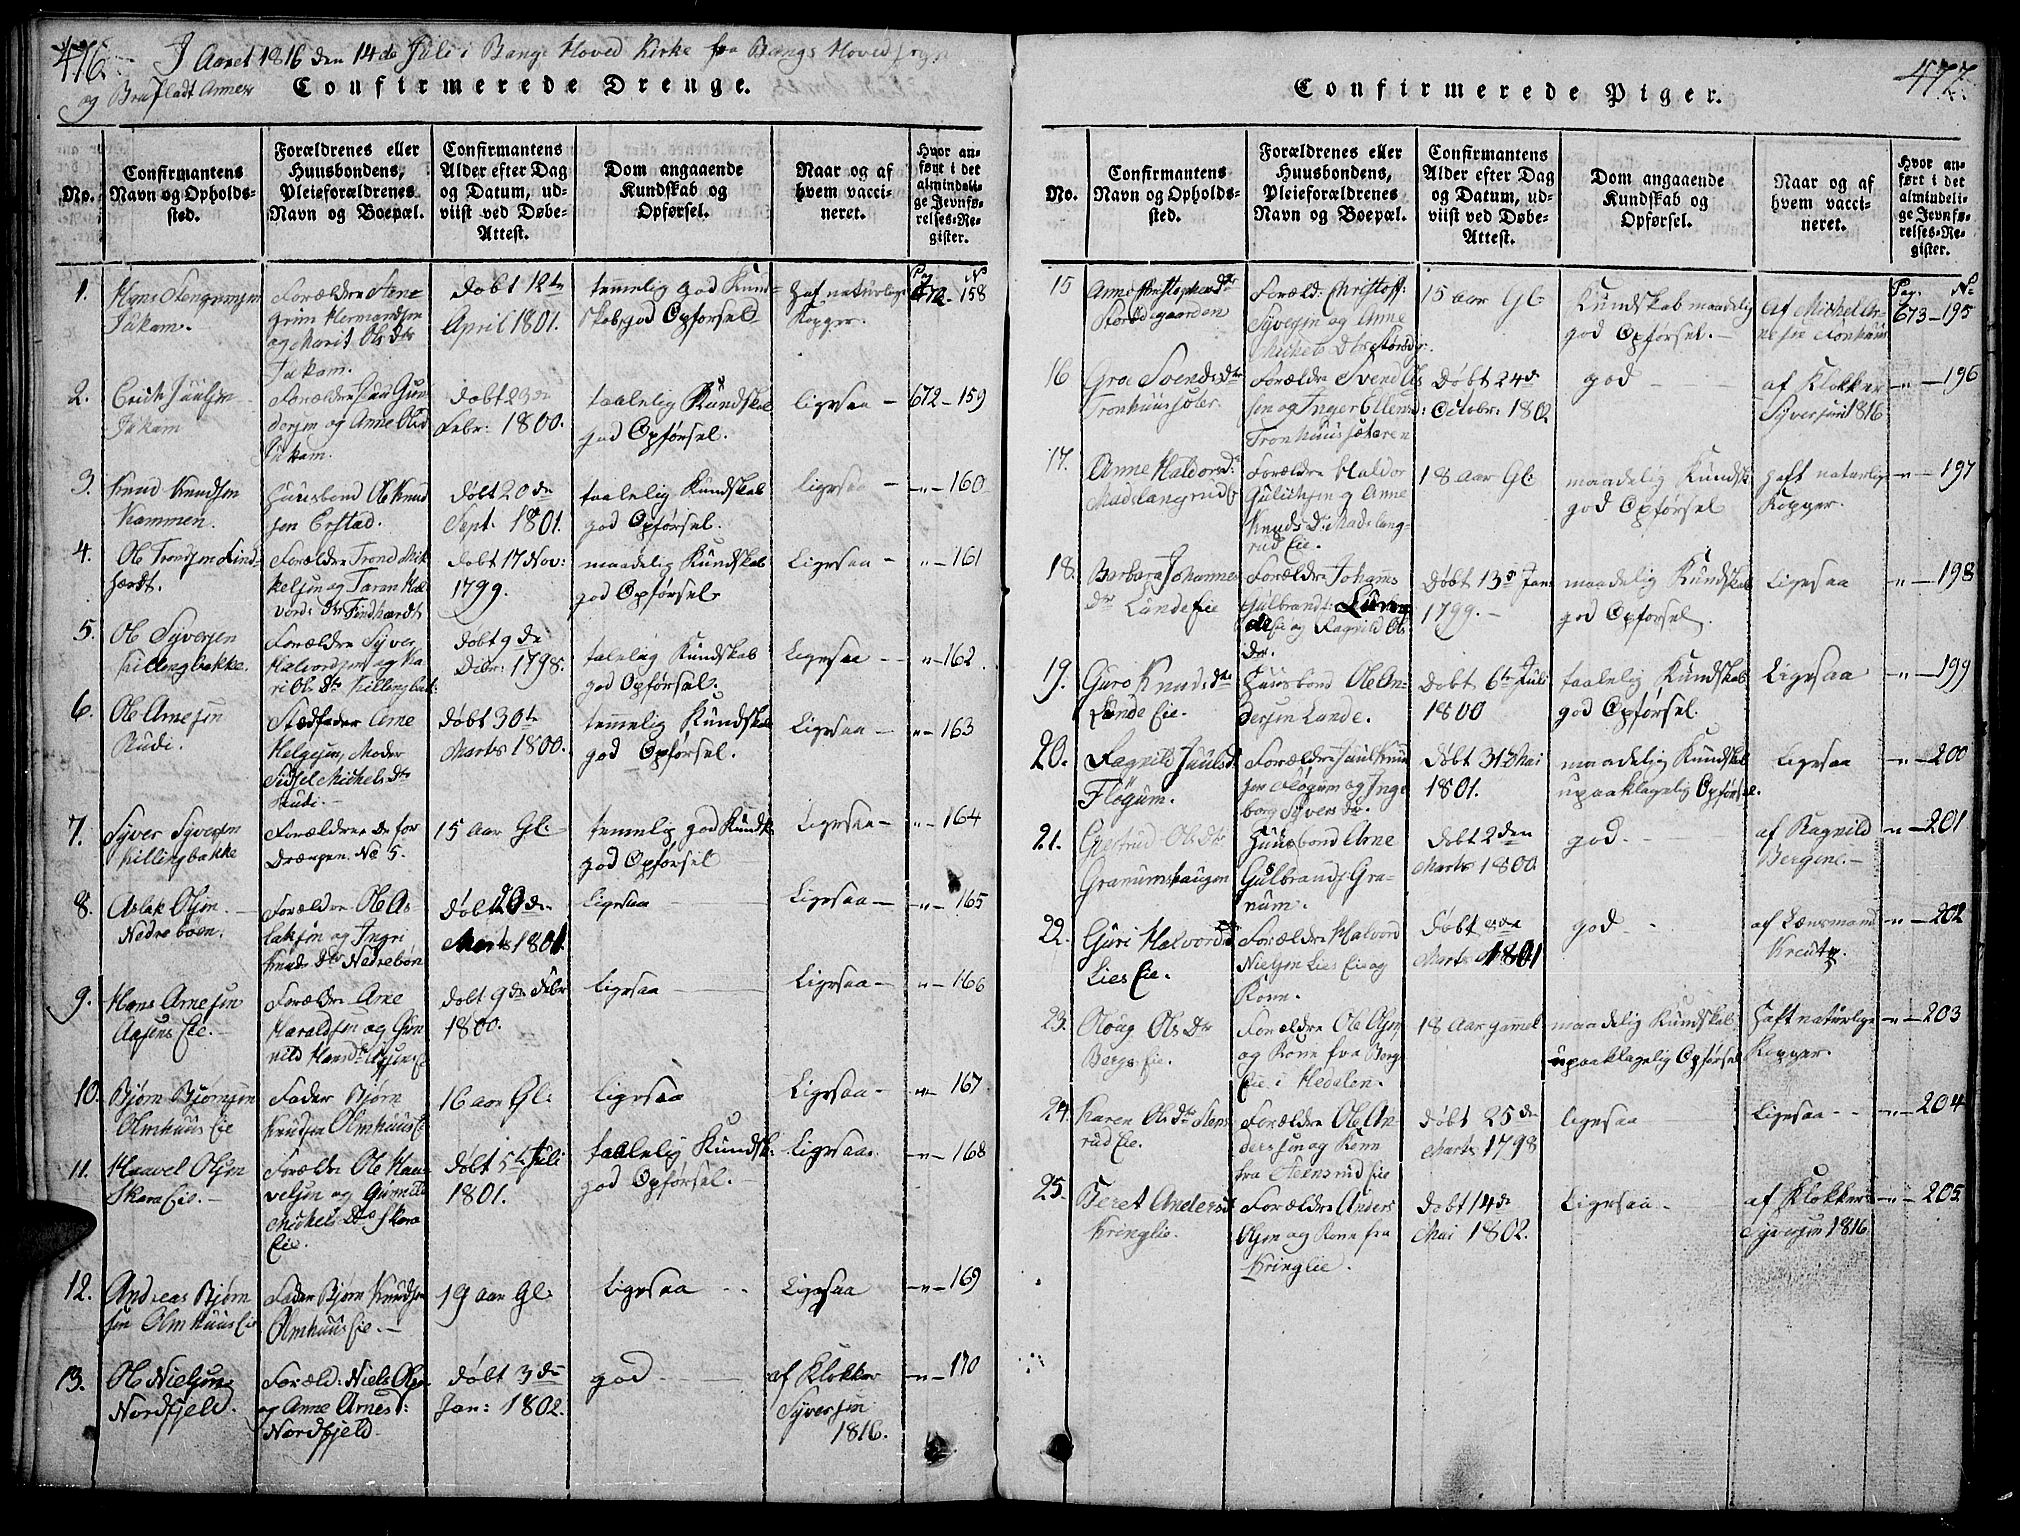 476.
I Aaret 1816 den 14de Juli i Bangs Hoved Kirke fra Bangs Hoved sogn
og Brufladt Annex
Confirmerede Drenge.
No.
Confirmantens
Navn og Opholds-
sted.
Forældrenes eller
Huusbondens,
Pleieforældrenes
Navn og Boepæl.
Confirmantens
Alder efter Dag
og Datum, ud-
viist ved Døbe-
Attest.
Dom angaaende
Kundskab og
Opførsel.
Naar og af
hvem vacci-
neret.
Hvor an-
ført i det
almindeli-
ge Jevnfø-
relses-Re-
gister.
1.
Jukam.
Forældre Sten-
grim Hermandsen
og Marit Ols Dtr
Jukam.
Døbt 12te
April 1801.
temmelig god Kund-
skab, god Opførsel
haft naturlige
Kopper.
Pag N
672 - 158
2.
Erich Juulsen
Jukam
Forældre Juul Gun-
dersen og Anne Ols D
Jukam.
Døbt 23de
Febr: 1800.
taalelig Kundskab
god Opførsel.
ligesaa
672 - 159
3.
Knud Knudsen
Kammen.
Huusbond Ole Knud
sen Erstad.
Døbt 20de
Sept. 1801.
taalelig Kundskab
god Opførsel.
ligesaa
" - 160
4.
Ole Trondsen Lind-
hardt.
Forældre Trond Mik-
kelsen og Taran Hal-
vords Dtr Lindhardt
Døbt 17 Nov:
1799.
maadelig Kundskab
god Opførsel.
Ligesaa
" - 161
5.
Ole Syversen
Killingbakke.
Forældre Syver
Halvordsen og Ka-
ri Ols Dtr Killingbak:
Døbt 9de
Decbr: 1798.
taalelig Kundskab
god Opførsel.
Ligesaa
" - 162.
6.
Ole Arnesen
Rudi.
Stedfader Arne
Helgesen, Moder
Sidsel Michels Dtr
Rudi.
Døbt 30te
Marts 1800.
temmelig Kundskab
god Opførsel.
Ligesaa
" - 163
7.
Syver Syversen
Killingbakke
Forældrene See for
Drengen No 5.
15 Aar Gl:
temmelig god Kundsk
god Opførsel
Ligesaa
" - 164
8.
Aslak Olsen
Nedreboen.
Forældre Ole As-
laksen og Ingri
Knuds Dtr Nedrebøn
Døbt 20de
Marts 1801.
ligesaa
Ligesaa
" - 165
9.
Hans Arnesen
Aasens Eie.
Forældre Arne
Haraldsen og Gun
nild Hansd: Aasens Ei
Døbt 9de Febr
1800.
ligesaa
Ligesaa
" - 166
10.
Bjørn Bjørnsen
Olmhuus Eie
Fader Bjørn
Knudsen Olmhuus Ei
16 aar Gl:
ligesaa
Ligesaa
" - 167
11.
Haavel Olsen
Skara Eie.
Forældre Ole Haa-
velsen og Gunnild
Michels Dtr Skara
Eie.
Døbt 5te Juli
1801.
taalelig Kundsk:
god Opførsel.
Ligesaa.
" - 168
12.
Andreas Bjørn
sen Olmhuus Eie
Fader Bjørn Knudsen
Olmhuus Eie.
19 aar Gl:
ligesaa
Ligesaa
" - 169
13.
Ole Nielsen
Nordfjeld.
Foræld: Niels Ols
og Anne Arnesd:
Nordfjeld.
Døbt 3de
Jan: 1802.
god
af Klokker
Syversen
1816.
" - 170
477.
Confirmerede Piger.
No.
Confirmantens
Navn og Opholds-
sted.
Forældrenes eller
Huusbondens,
Pleieforældrenes
Navn og Boepæl.
Confirmantens
Alder efter Dag
og Datum, ud-
viist ved Døbe-
Attest.
Dom angaaende
Kundskab og
Opførsel.
Naar og af
hvem vacci-
neret.
Hvor an-
ført i det
almindeli-
ge Jevnfø-
relses-Re-
gister.
15
Anne Christophersdtr
Storødegaarden
Foræld: Christoff:
Syversen og Anne
Michels Dtr Storødg:
15 aar Gl:
Kundskab maadelig
god Opførsel.
af Michel Ar-
nesen Fønhuus
Pag. N.
673 - 195
16
Groe Svendsdtr
Tronhuussæter.
Forældre Svend Ols
sen og Inger Ellensd:
Tronhuussæteren
Døbt 24de
October: 1802
god
af Klokker
Syversen 1816
" - 196
17.
Anne Haldorsd:
Madslangrud
Forældre Haldor
Gulichsen og Anne
Knuds Dtr Madslang-
rud Eie.
18 Aar Gl:
maadelig Kundsk:
god Opførsel
haft naturlige
Kopper.
" - 197
18.
Barbara Johannes
dtr Lunde Eie
Forældre Johannes
Gulbrands: Lun
de Eie og Ragnild Ols
Dtr.
Døbt 13de Jan:
1799.
maadelig Kundskab
god Opførsel.
Ligesaa
" - 198
19.
Guro Knudsdtr
Lunde Eie.
Huusbond Ole An-
dersen Lunde.
Døbt 6te Juli
1800
taalelig Kundskab
god Opførsel.
Ligesaa
" - 199
20.
Ragnild Juulsd
Fløgum.
Forældre Juul Knud
sen Fløgum og Inge
borg Syvers Dtr.
Døbt 31te Mai
1801.
maadelig Kundskab
upaaklagelig Opførsel.
ligesaa
" - 200
21.
Giertrud Ols Dtr
Granumshaugen
Huusbond Arne
Gulbrands: Gra-
num.
Døbt 2den
Marts 1800
god
af Ragnild
Bergene.
" - 201
22.
Guri Halvordsd
Lies Eie.
Forældre Halvord
Nielsen Lies Eie og
Kone.
Døbt
Marts 1801
god
af Lensmand
Kreutz.
" - 202
23.
Oloug Ols Dtr
Bergs Eie.
Forældre Ole Olsen
og Kone fra Bergs
Eie i Hedalen.
18 Aar gammel
maadelig Kundskab
upaaklagelig Opførsel
haft naturlige
Kopper.
" - 203
24.
Karen Ols dtr Stens
rud Eie.
Forældre Ole An
dersen og Kone
fra Steensrud Eie
Døbt 25de
Marts 1798
ligesaa
Ligesaa
" - 204
25.
Beret Andersd
Kringlie.
Forældre Anders
Olsen og Kone fra
Kringlie.
Døbt 14de
Mai 1802.
Ligesaa
af Klokker
Syversen 1816.
" - 205